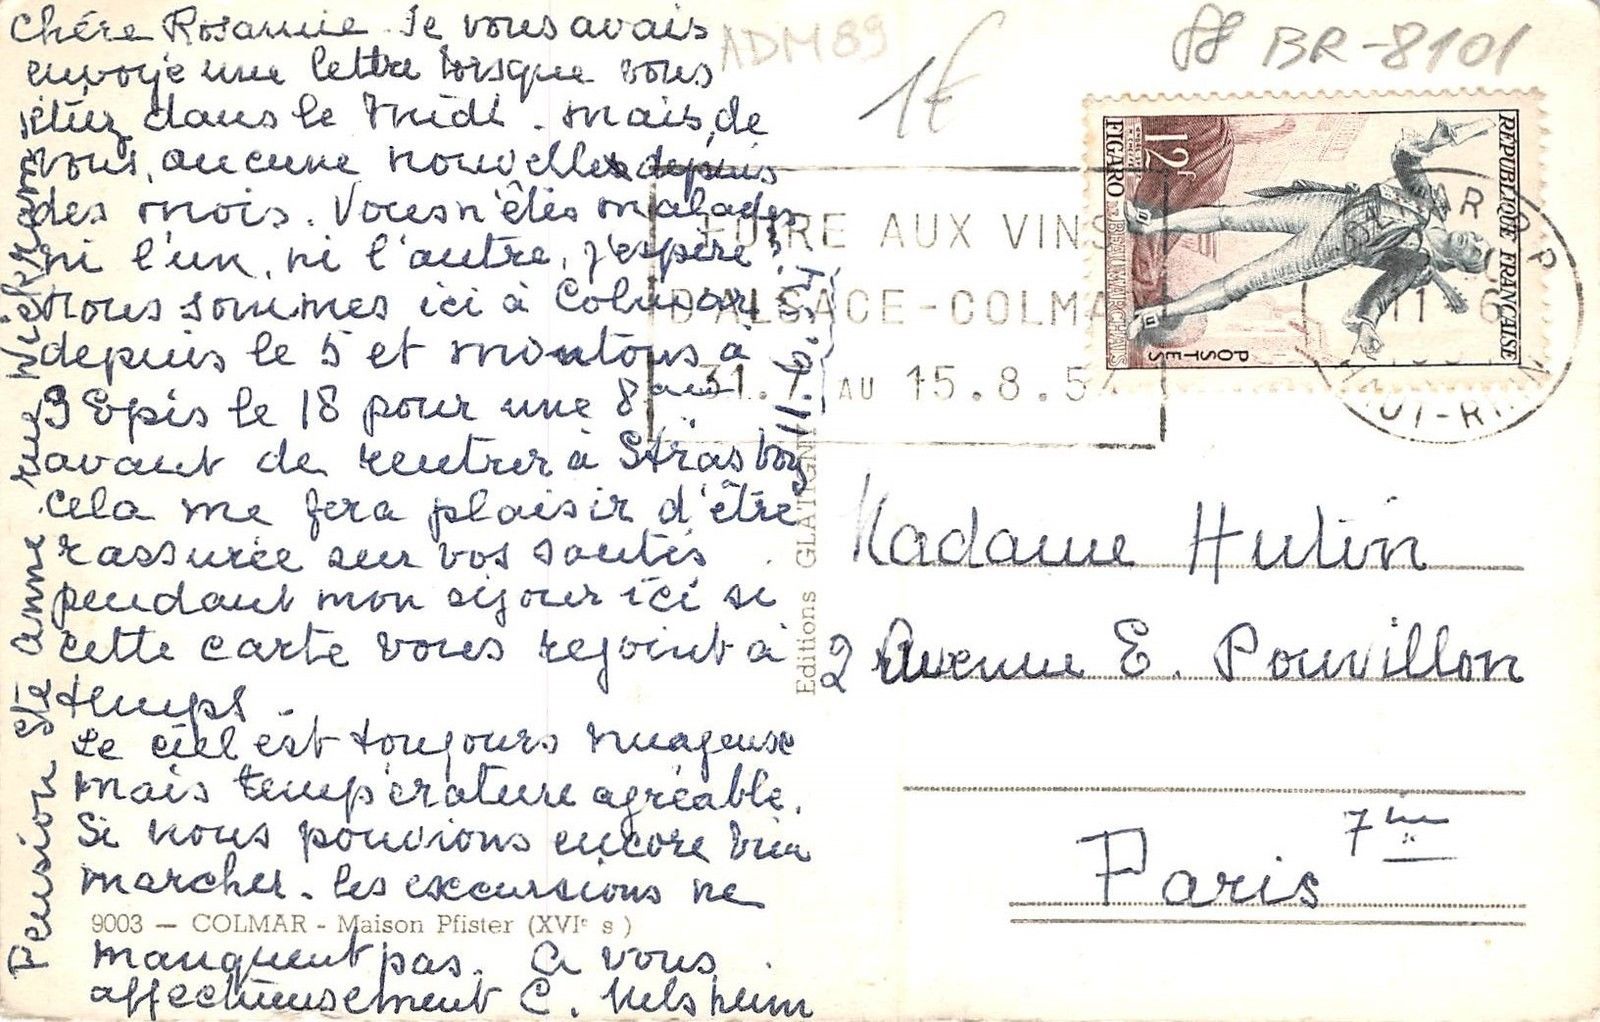 Chére Rosannie. Je vous avais
envoyé une lettre lorsque vous
étiez dans le Midi. Mais, de
vous, aucune nouvelles depuis
des mois. Vous n'êtes malades
ni l'un, ni l'autre, j'espère?
Nous sommes ici à Colmar
depuis le 5 et montons à
3 Epis le 18 pour une 8aine
avant de rentrer à Strasbg
Cela me fera plaisir d'être
rassurée sur vos santés
pendant mon séjour ici si
cette carte vous rejoint à
temps.
Le ciel est toujours nuageux
mais température agréable.
Si nous pouvions encore bien
marcher. les excursions ne
manquent pas. A vous
affectueusement C.
Pension Ste Anne rue
11.6.54
9003 — COLMAR - Maison Pfister (XVIe s)
Editions GLATIGNY
ADM 89
1€
88 BR-8101
FOIRE AUX VINS
D'ALSACE-COLMAR
31.7 AU 15.8.54
COLMAR R.P.
11 - 6
HAUT-RHIN
REPUBLIQUE FRANÇAISE
POSTES
12F
FIGARO
BEAUMARCHAIS
Madame Hutin
2 Avenue E. Pouvillon
Paris 7me